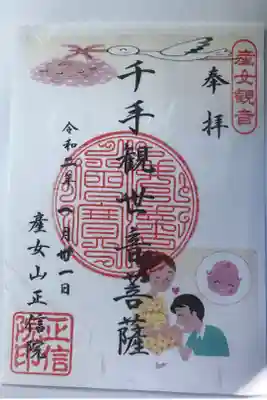 産女観音
奉拝
千手観世音菩薩
令和二年一月廿一日
産女山正信院
正信
院印